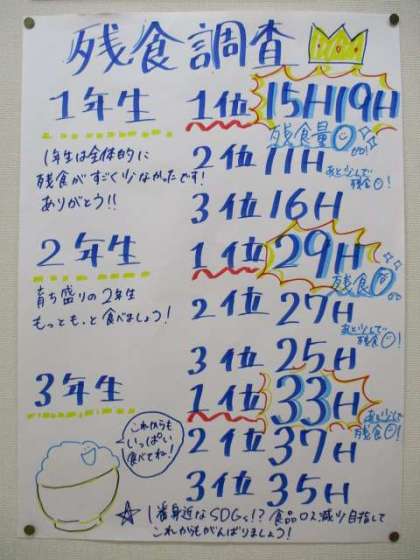 残食調査
1年生
1位 15H 19H
残食量0 GO!
1年生は全体的に
残食がすごく少なかったです!
ありがとう!!
2位 11H あと少しで残食0!
3位 16H
2年生
1位 29H
残食0
育ち盛りの2年生
もっともっと食べましょう!
2位 27H
あと少しで残食0!
3位 25H
3年生
1位 33H
あと少しで残食0!
これからも
いっぱい
食べてね!
2位 37H
3位 35H
1番身近なSDGs!? 食品ロス減少目指して
これからもがんばりましょう!